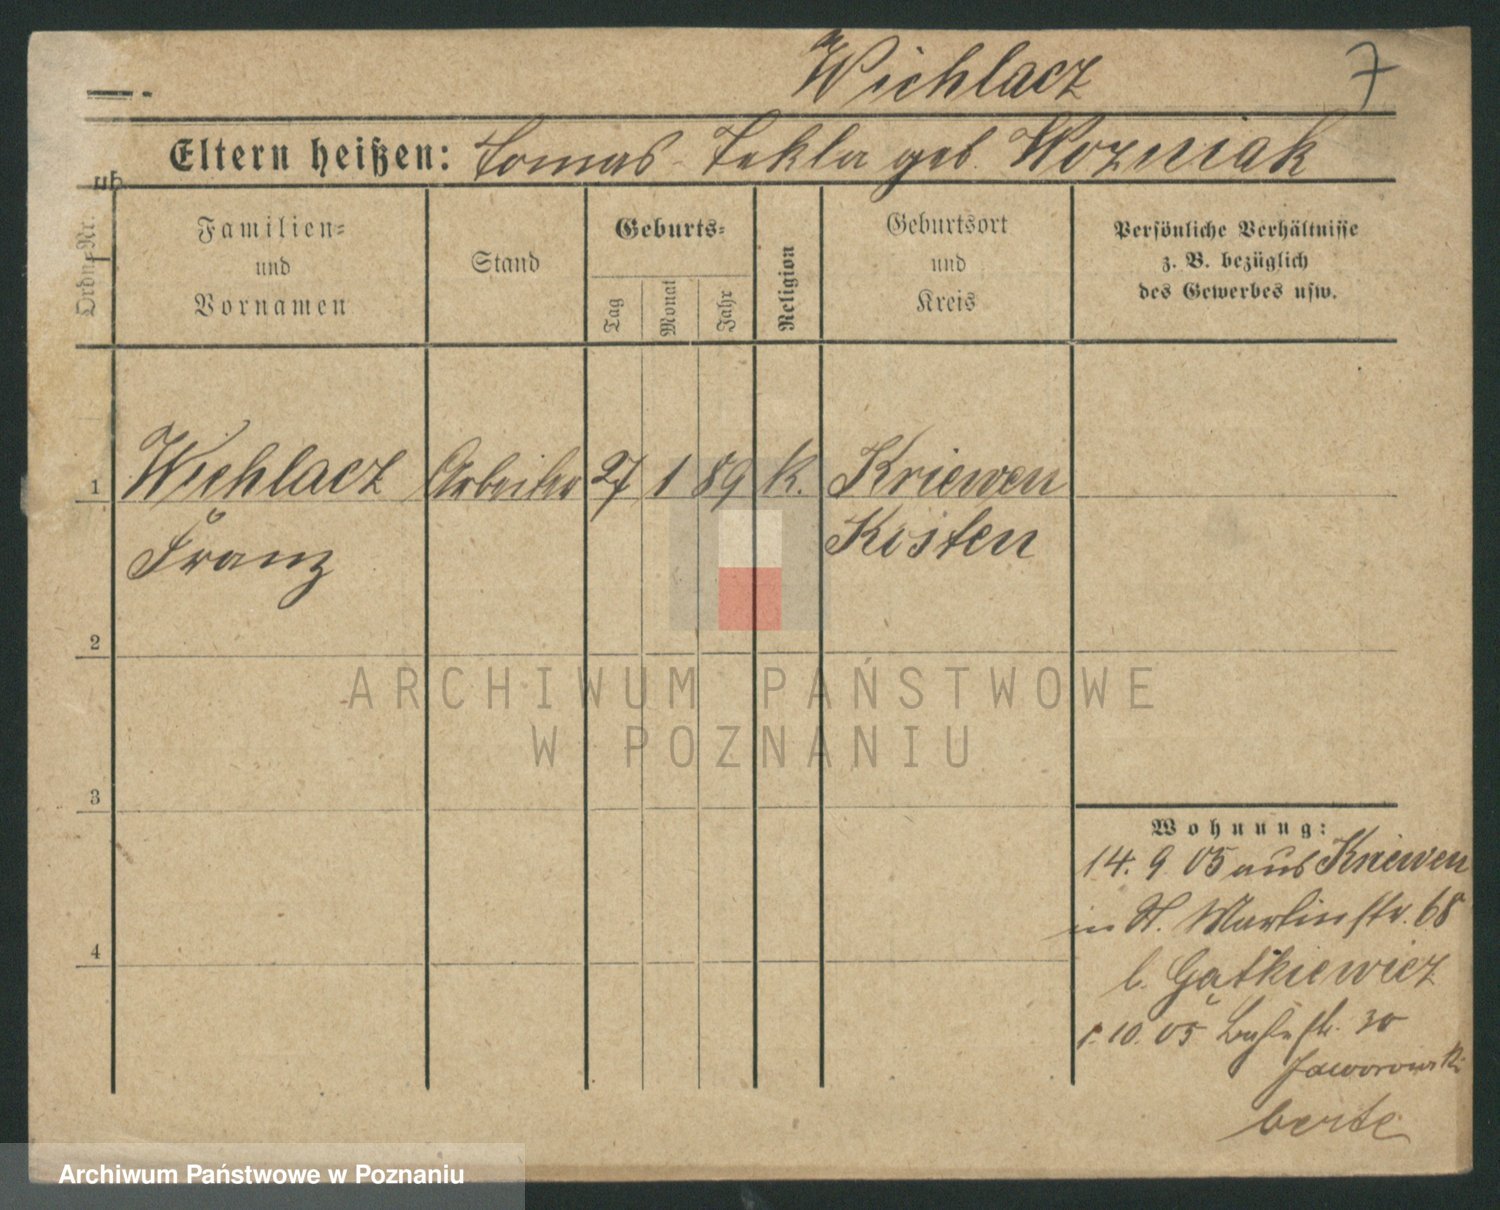 Wichlacz 7
Eltern heißen: Tomas - Tekla geb. Wozniak
Ordn.-Nr.
Familien- und Vornamen
Stand
Geburts-
Tag
Monat
Jahr
Religion
Geburtsort und Kreis
Persönliche Verhältnisse z. B. bezüglich des Gewerbes usw.
1 Wichlacz Arbeiter 27 1 89 K. Kriewen
Franz Kosten
2
ARCHIWUM PAŃSTWOWE
W POZNANIU
3
Wohnung:
14. 9 05 aus Kriewen
in St. Martinstr. 68
b. Gatkiewicz
4
1. 10. 05 30
Jaworowski
Archiwum Państwowe w Poznaniu